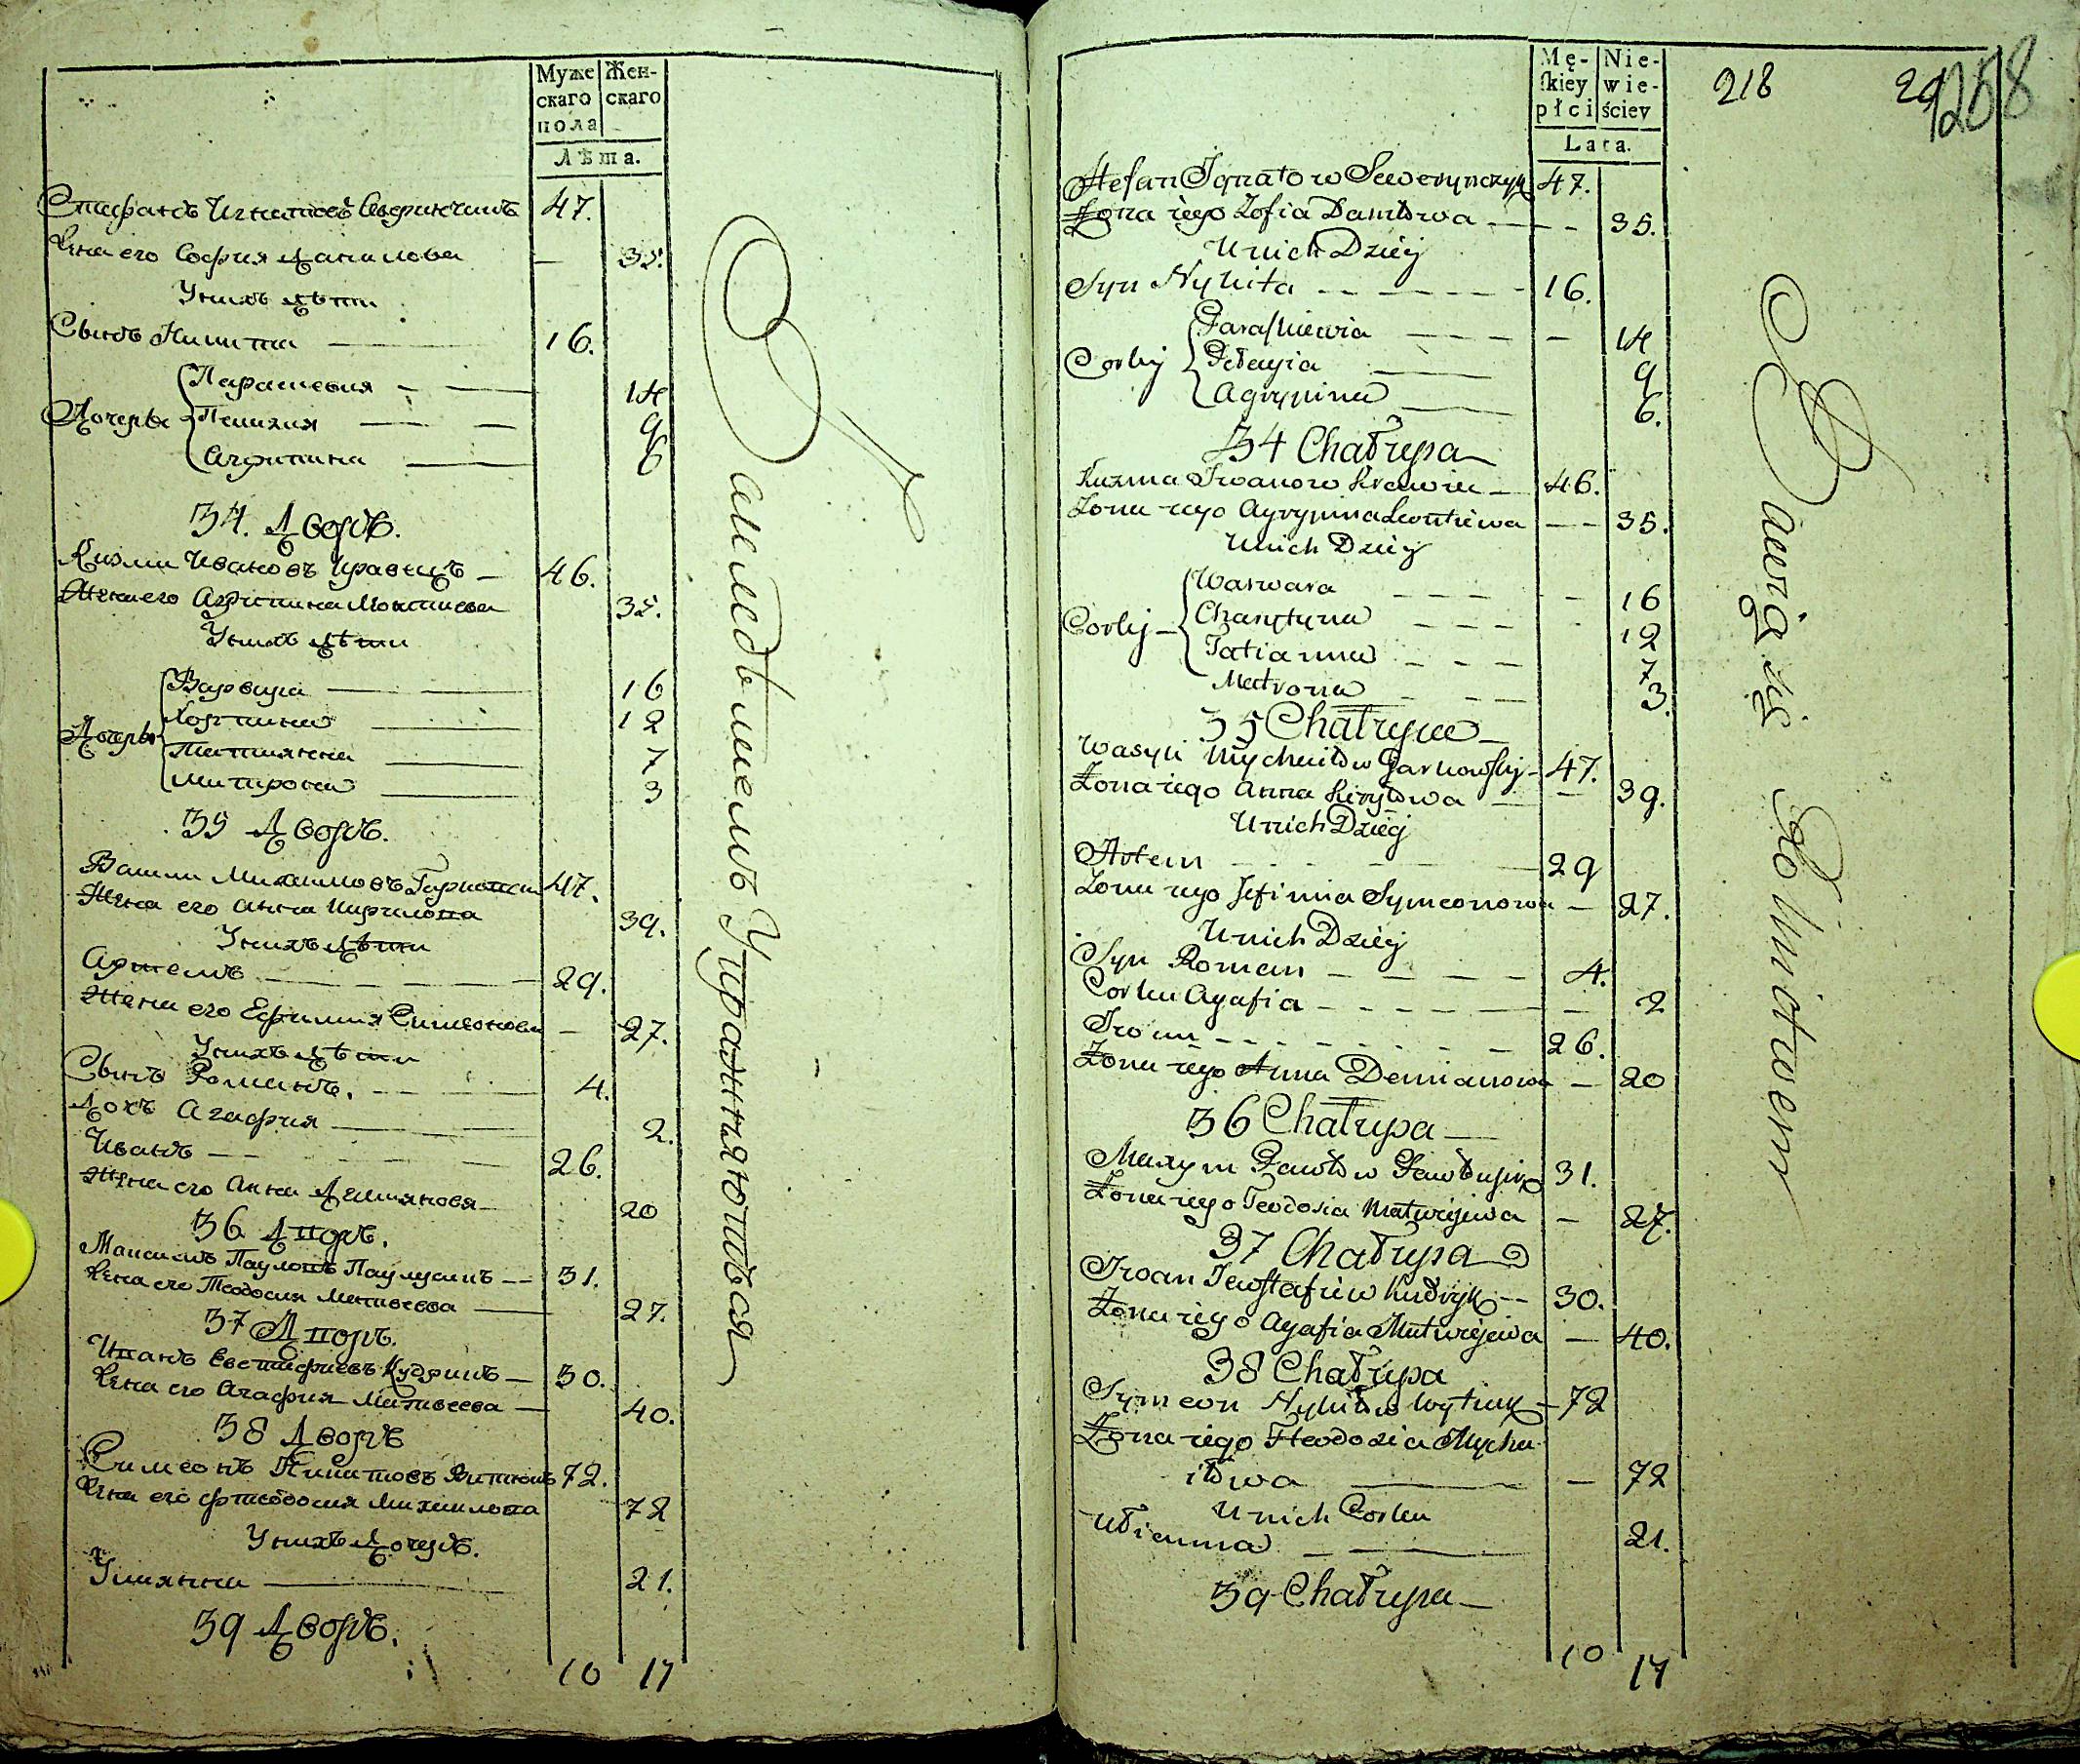 Муже Жен-
скаго скаго
пола
Лѣта.
Стефанъ Игнатовъ Северинчикъ 47.
Жена его София Данилова — 35.
У нихъ дѣти
Сынъ Никита 16.
Парасковия 14
Дочерѣ Пелагия 9
Агрипина 6
34. Дворъ.
Кузма Ивановъ Кравецъ 46.
Жена его Агрипина 35.
У нихъ дѣти
Варвара 16
Харитина 12
Дочерѣ Татиянна 7
Матрона 3
35 Дворъ.
Василь Михайловъ Гарновски 47.
Жена его Анна Кирилова 39.
У нихъ дѣти
Артемъ 29.
Жена его Ефимия Симеонова — 27.
У нихъ дѣти
Сынъ Романъ. 4.
Дочъ Агафия 2.
Иванъ 26.
Жена его Анна Демянова 20
36 Дворъ.
Максимъ Павловъ 31.
Жена его Теодосия Матвеева 27.
37 Дворъ.
Иванъ Евстафиевъ Кудрикъ 30.
Жена его Агафия Матвеева 40.
38 Дворъ
Симеонъ Никитовъ Витюкъ 72.
Жена его Фтеодосия Михайлова 72
У нихъ дочеръ.
Улиянна 21.
39 Дворъ.
10 17
Землѣделиемъ Упражняются
Mę- Nie-
ſkiey wie-
płci ściey
Lata.
218
258
Stefan Ignatow Sewerynczyk 47.
Żona iego Zofia Daniłowa 35.
U nich Dzieij
Syn Nykita 16.
Paraſkiewia 14
Corkij Pełagia 9
Agrypina 6.
34 Chałupa
Kuzma Iwanow Krawiec 46.
Żona iego Agrypina Leontiewa 35.
U nich Dzieij
Warwara 16
Corkij Charytyna 12
Tatianna 7
Matrona 3.
35 Chałupa
Wasyli Mychaiłow Garnowſkij 47.
Żona iego Anna Kiryłowa 39.
U nich Dzieij
Artem 29
Żona iego Jefimia Symeonowa 27.
U nich Dzieij
Syn Roman 4.
Corka Agafia 2
Iwan 26.
Żona iego Anna Demianowa 20
36 Chałupa
Maxym Pawłow 31.
Żona iego Teodosia Matwiejewa 27.
37 Chałupa
Iwan Jewſtafiew Kudryk 30.
Żona iego Agafia Matwiejewa 40.
38 Chałupa
Symeon Nykitow Wytiuk 72
Żona iego Fteodosia Mycha
iłowa 72
U nich Corka
Ulianna 21.
39 Chałupa
10 17
Bawią się Rolnictwem